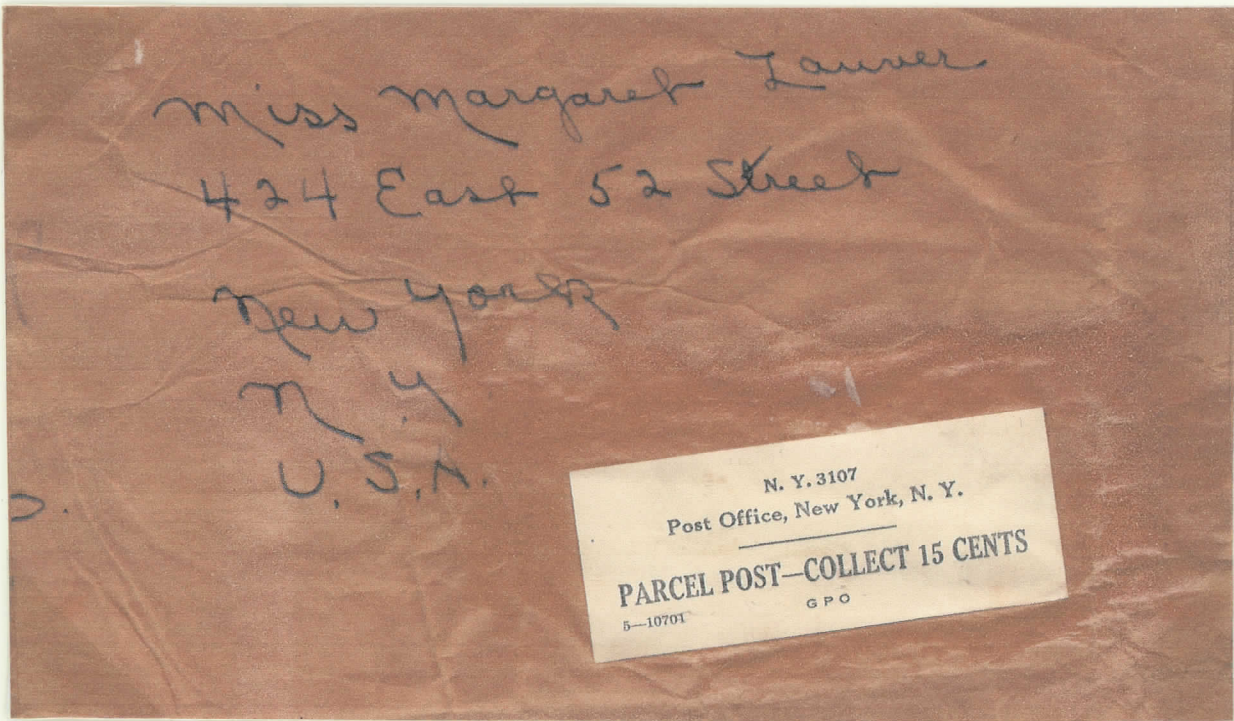 Miss Margaret Lauver
424 East 52 Street
New York
N. Y
U. S. A.
N. Y. 3107
Post Office, New York, N. Y.
PARCEL POST—COLLECT 15 CENTS
GPO
5—10701